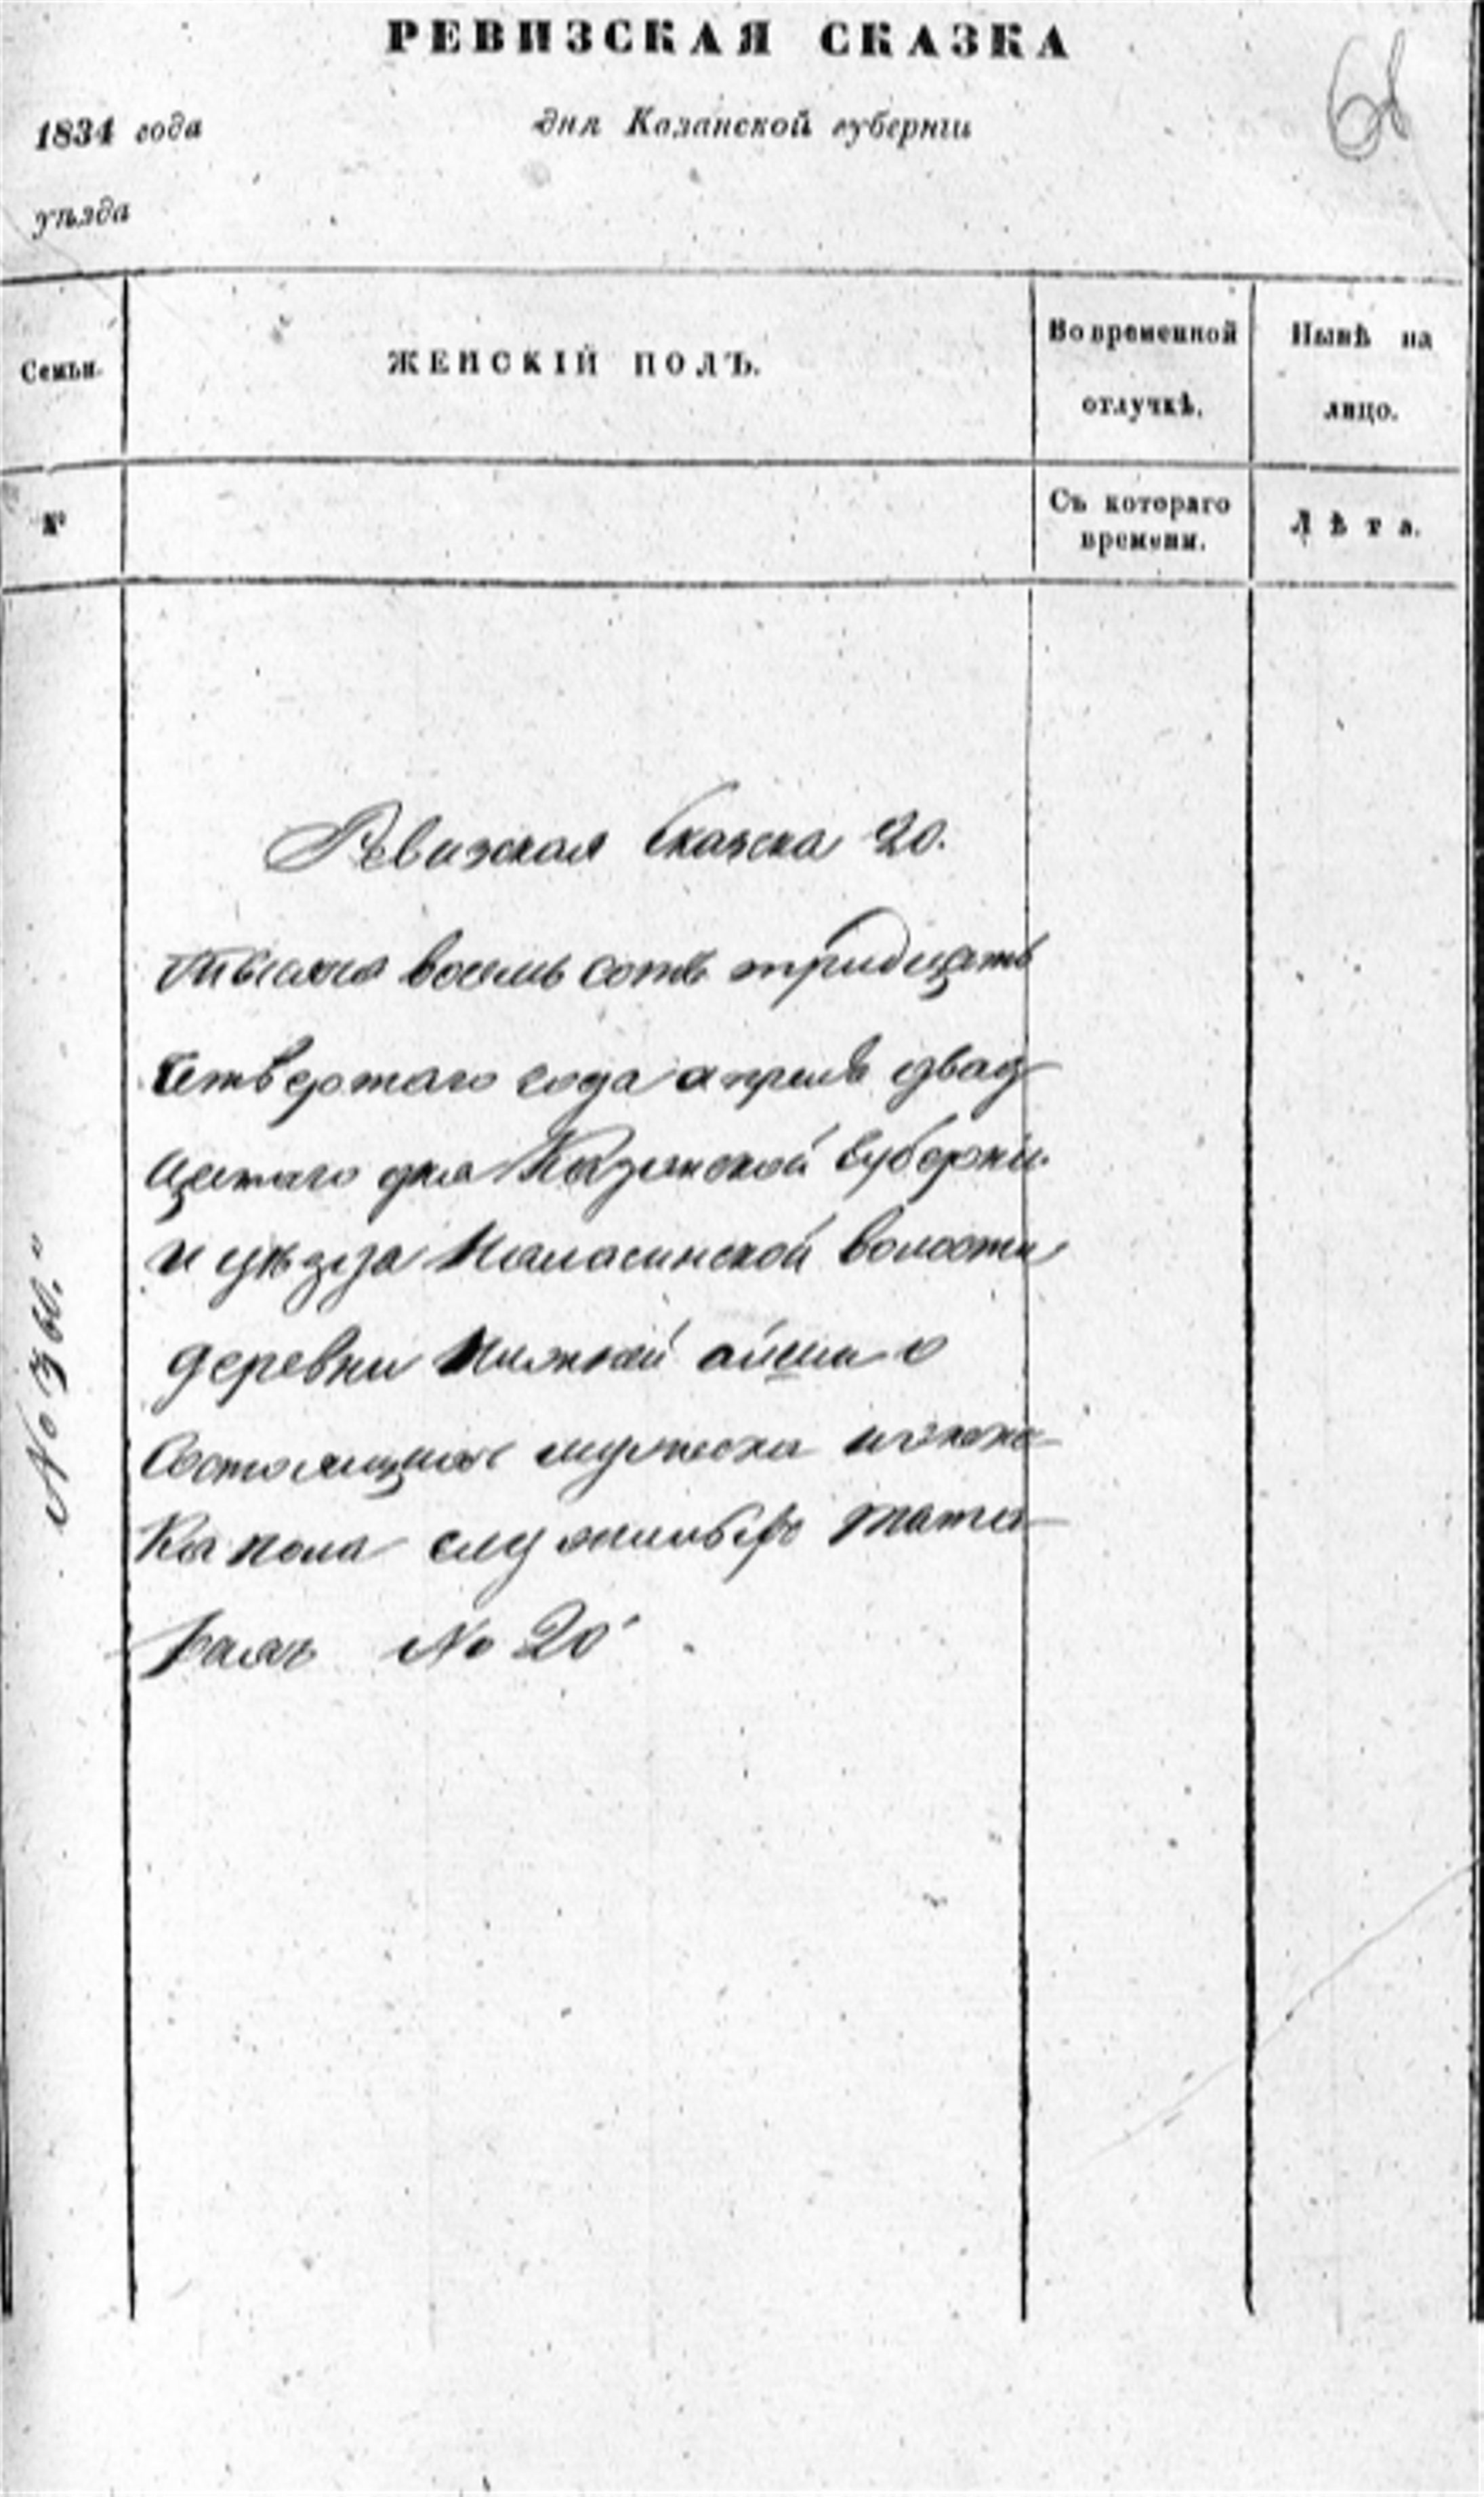 РЕВИЗСКАЯ СКАЗКА
1834 года дня Казанской губернiи
уѣзда
Семьи. ЖЕНСКIЙ ПОЛЪ. Во временной отлучкѣ. Нынѣ на лицо.
№ Съ котораго времени. Лѣта.
Ревизская Сказска 20.
тысяча восемь сотъ тридцать
Четвертаго года апреля двад
цатаго дня Казанской Губернiи
и уѣзда Каласинской волости
деревни Нижней айши о
Состоящихъ мужеска и женс
ка пола служилыхъ тата
рахъ № 20
№ 360.